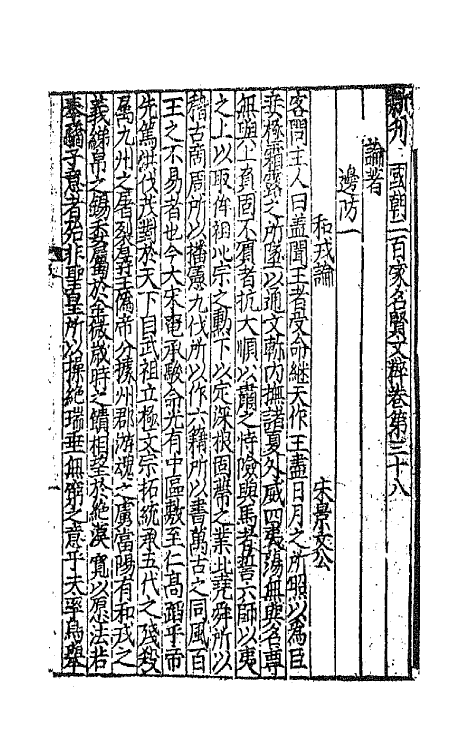 新刋三國朝二百家名賢文粹卷第三十八
論著
邊防一
和戎論
宋景文公
客問主人曰蓋聞王者受命継天作主盡日月之所照以為臣
妾極霜露之所墜以通文軫内撫諸夏外威四夷蕩無與名尊
無與上負固不賔者抗大順以
之恃險與馬者誓六師以夷
之上以取侔祖宗之勳下以定深根固蔕之業此堯舜所以
稽古商周所以播憲九伐所以作六籍所以書萬古之同風百
王之不易者也今大宋電承駿命光有中區敷至仁髙蹈乎帝
先篤洪伐茂闡於天下自武祖立極文宗拓統承五代之
属九州之屠裂孱王僞帝分據州郡游魂之虜當陽有和戎之
義綈帛之錫委屬於
歳時之饋相望於絶漠寛以憲法若
奉驕子意者殆非聖皇所以操絶瑞垂無窮之意乎夫率鳥舉